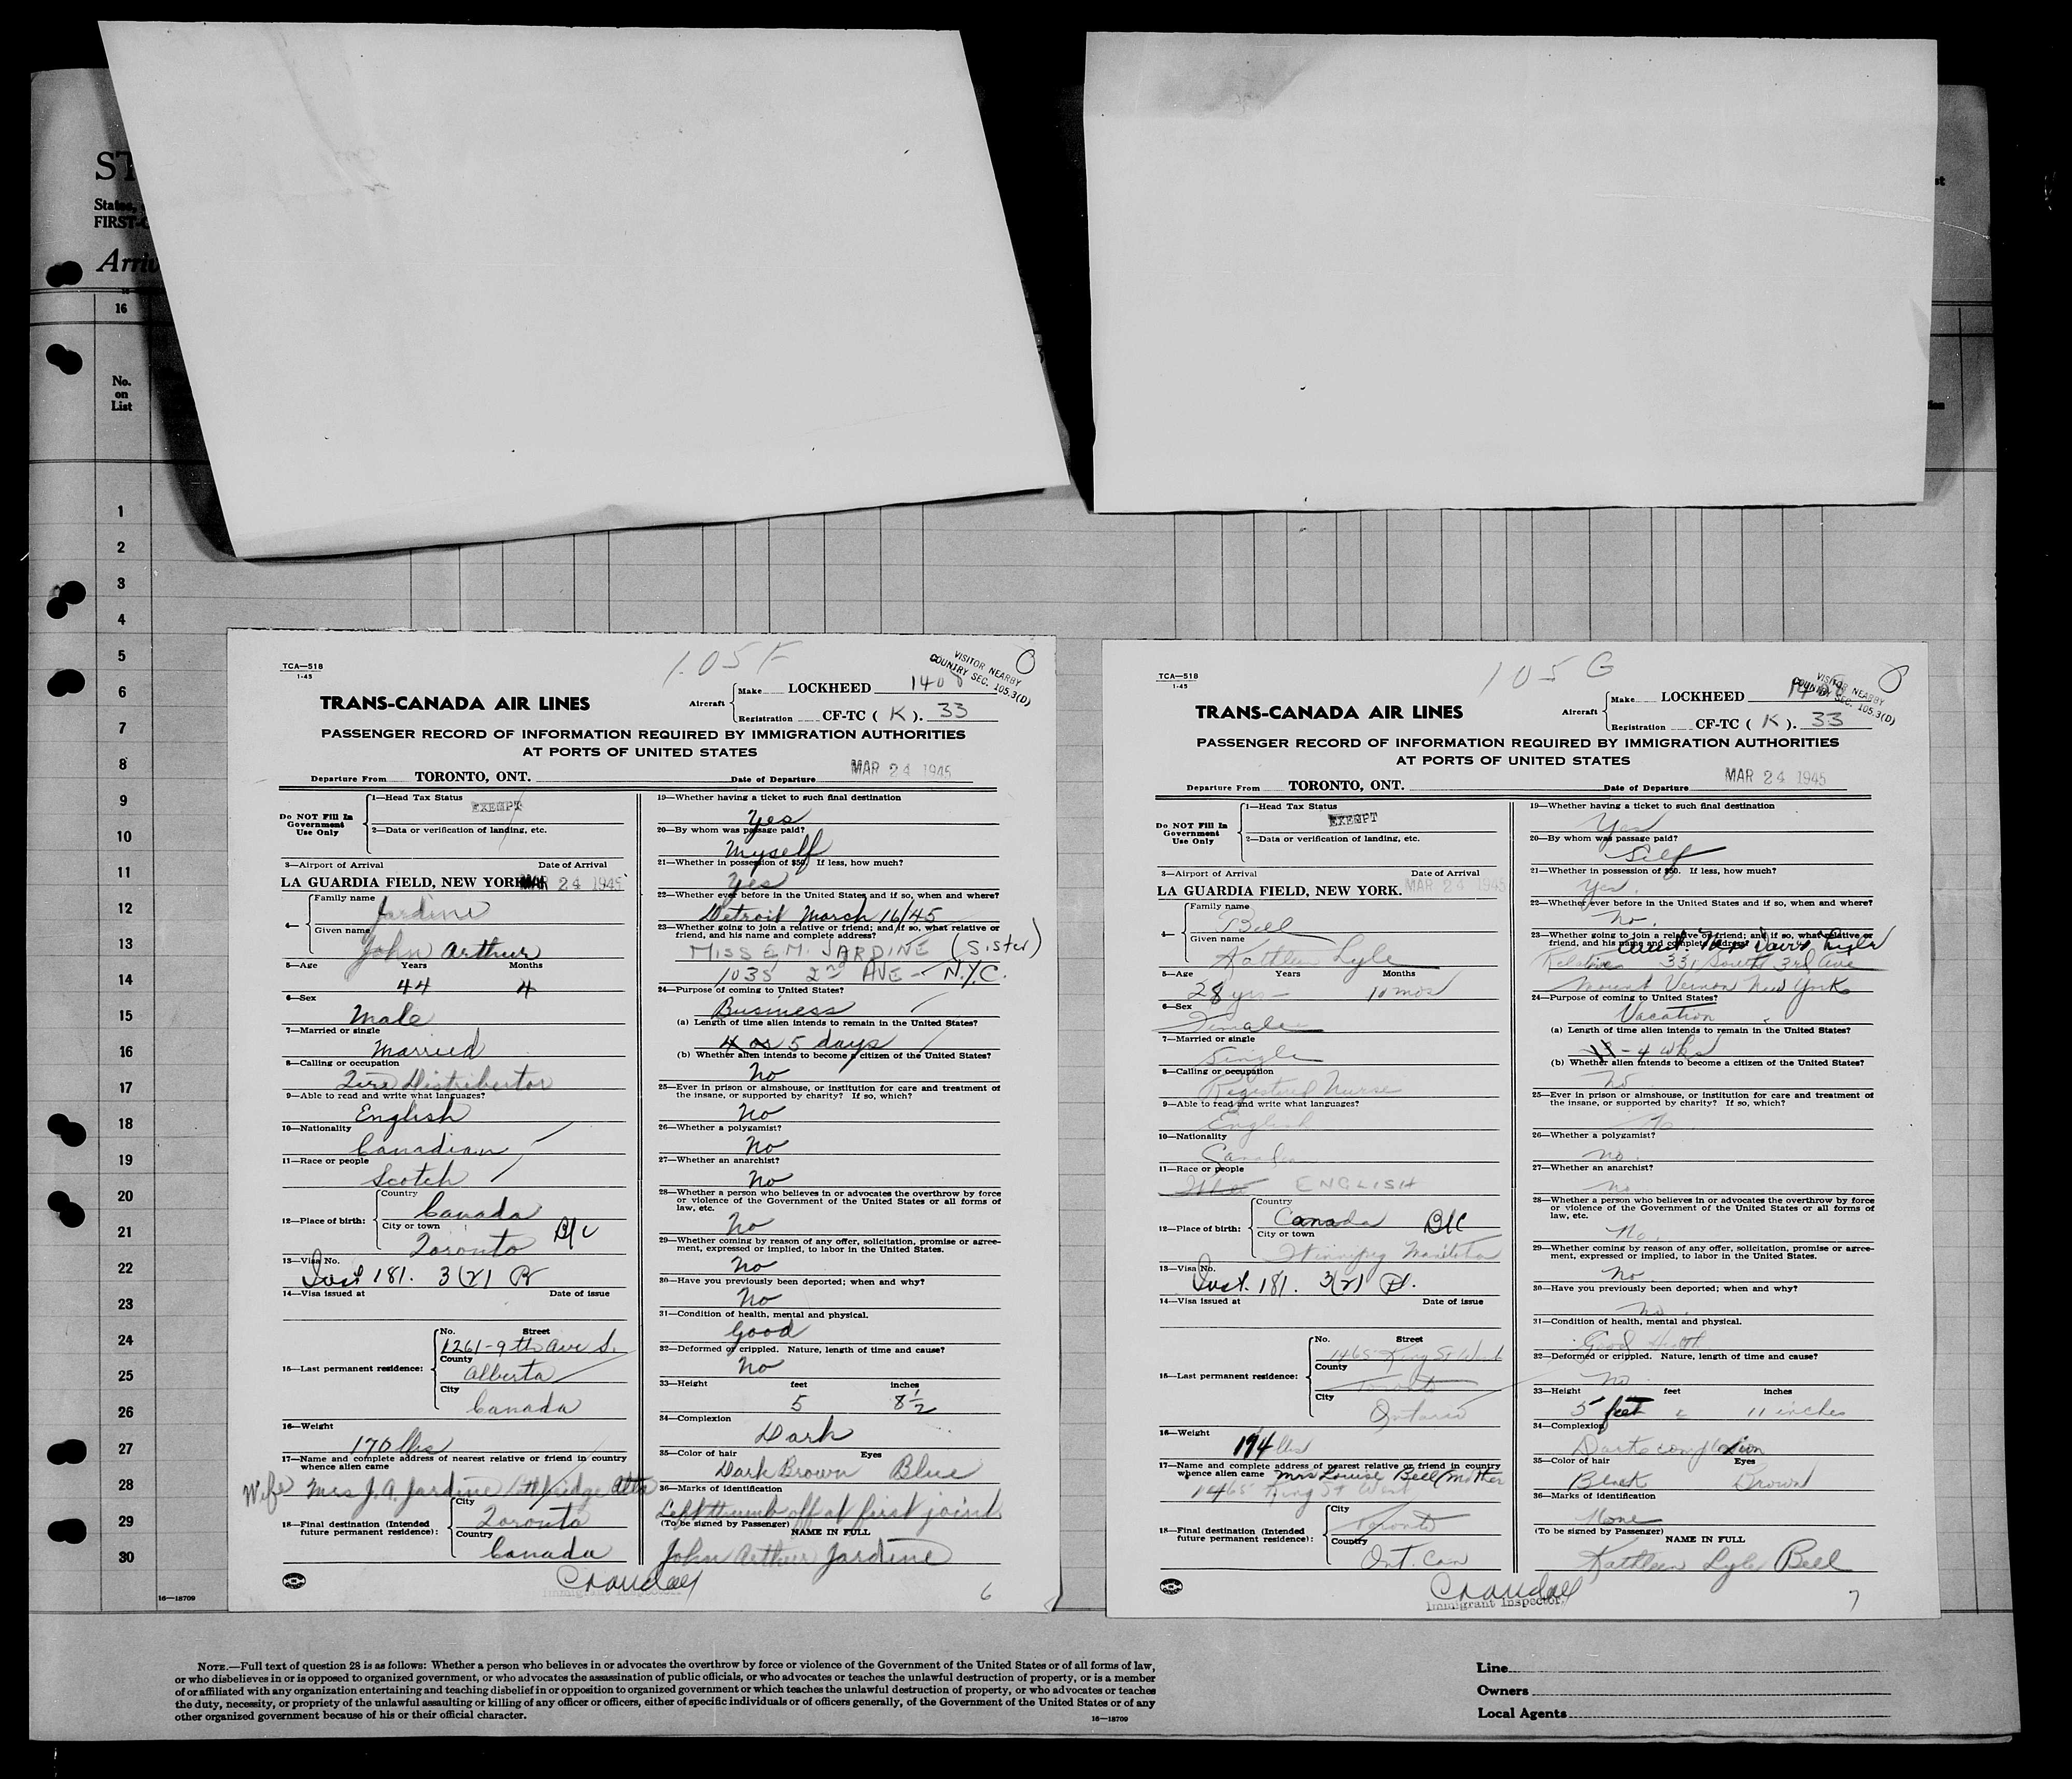 States,
16
No.
on
List
1
2
3
4
5
6
7
8
9
10
11
12
13
14
15
16
17
18
19
20
21
22
23
24
25
26
27
28
29
30
16—18709
105 F
TCA—518
1-45
VISITOR NEARBY
COUNTRY SEC. 105.3(D)
TRANS-CANADA AIR LINES
Aircraft
Make LOCKHEED 1408
Registration CF-TC ( K ). 33
PASSENGER RECORD OF INFORMATION REQUIRED BY IMMIGRATION AUTHORITIES
AT PORTS OF UNITED STATES
Departure From TORONTO, ONT. Date of Departure MAR 24 1945
Do NOT Fill In
Government
Use Only
1—Head Tax Status EXEMPT
2—Data or verification of landing, etc.
3—Airport of Arrival Date of Arrival
LA GUARDIA FIELD, NEW YORK MAR 24 1945
4— Family name Jardine
Given name John Arthur
5—Age Years Months
44 4
6—Sex
Male
7—Married or single
Married
8—Calling or occupation
Tire Distributor
9—Able to read and write what languages?
English
10—Nationality
Canadian
11—Race or people
Scotch
12—Place of birth: Country
Canada
City or town
Toronto B/C
13—Visa No.
181. 3(2)
14—Visa issued at Date of issue
15—Last permanent residence: No. Street
1261-9th Ave S.
County
Alberta
City
Canada
16—Weight
170 lbs
17—Name and complete address of nearest relative or friend in country
whence alien came
Wife Mrs J. A. Jardine Lethbridge Alta
18—Final destination (Intended
future permanent residence):
City
Toronto
Country
Canada
19—Whether having a ticket to such final destination
Yes
20—By whom was passage paid?
Myself
21—Whether in possession of $50. If less, how much?
Yes
22—Whether ever before in the United States and if so, when and where?
Detroit March 16/45
23—Whether going to join a relative or friend; and if so, what relative or
friend, and his name and complete address?
MISS E.M. JARDINE (Sister)
1035 2nd AVE - N.Y.C.
24—Purpose of coming to United States?
Business
(a) Length of time alien intends to remain in the United States?
4 or 5 days
(b) Whether alien intends to become a citizen of the United States?
No
25—Ever in prison or almshouse, or institution for care and treatment of
the insane, or supported by charity? If so, which?
No
26—Whether a polygamist?
No
27—Whether an anarchist?
No
28—Whether a person who believes in or advocates the overthrow by force
or violence of the Government of the United States or all forms of
law, etc.
No
29—Whether coming by reason of any offer, solicitation, promise or agree-
ment, expressed or implied, to labor in the United States.
No
30—Have you previously been deported; when and why?
No
31—Condition of health, mental and physical.
Good
32—Deformed or crippled. Nature, length of time and cause?
No
33—Height feet inches
5 8½
34—Complexion
Dark
35—Color of hair Eyes
Dark Brown Blue
36—Marks of identification
Left thumb off at first joint
(To be signed by Passenger) NAME IN FULL
John Arthur Jardine
Crandall
Immigrant Inspector
6
105 G
TCA—518
1-45
VISITOR NEARBY
COUNTRY SEC. 105.3(D)
TRANS-CANADA AIR LINES
Aircraft
Make LOCKHEED 1408
Registration CF-TC ( K ). 33
PASSENGER RECORD OF INFORMATION REQUIRED BY IMMIGRATION AUTHORITIES
AT PORTS OF UNITED STATES
Departure From TORONTO, ONT. Date of Departure MAR 24 1945
Do NOT Fill In
Government
Use Only
1—Head Tax Status
EXEMPT
2—Data or verification of landing, etc.
3—Airport of Arrival Date of Arrival
LA GUARDIA FIELD, NEW YORK. MAR 24 1945
4— Family name
Bell
Given name
Kathleen Lyle
5—Age Years Months
28 yrs 10 mos
6—Sex
Female
7—Married or single
Single
8—Calling or occupation
Registered Nurse
9—Able to read and write what languages?
English
10—Nationality
Canadian
11—Race or people
ENGLISH
12—Place of birth: Country
Canada B/C
City or town
Winnipeg Manitoba
13—Visa No.
181. 3(2)
14—Visa issued at Date of issue
15—Last permanent residence: No. Street
1465 King St West
County
Toronto
City
Ontario
16—Weight
174 lbs
17—Name and complete address of nearest relative or friend in country
whence alien came Mrs Louise Bell (Mother
1465 King St West
18—Final destination (Intended
future permanent residence):
City
Toronto
Country
Ont. Can
19—Whether having a ticket to such final destination
Yes
20—By whom was passage paid?
Self
21—Whether in possession of $50. If less, how much?
Yes.
22—Whether ever before in the United States and if so, when and where?
No.
23—Whether going to join a relative or friend; and if so, what relative or
friend, and his name and complete address? Aunt. Lyle
Relative 331 South 3rd Ave
Mount Vernon New York
24—Purpose of coming to United States?
Vacation
(a) Length of time alien intends to remain in the United States?
4 wks
(b) Whether alien intends to become a citizen of the United States?
No
25—Ever in prison or almshouse, or institution for care and treatment of
the insane, or supported by charity? If so, which?
No
26—Whether a polygamist?
no.
27—Whether an anarchist?
no
28—Whether a person who believes in or advocates the overthrow by force
or violence of the Government of the United States or all forms of
law, etc.
No.
29—Whether coming by reason of any offer, solicitation, promise or agree-
ment, expressed or implied, to labor in the United States.
no
30—Have you previously been deported; when and why?
no.
31—Condition of health, mental and physical.
Good Health
32—Deformed or crippled. Nature, length of time and cause?
no
33—Height feet inches
5 feet 11 inches
34—Complexion
Dark complexion
35—Color of hair Eyes
Black Brown
36—Marks of identification
None
(To be signed by Passenger) NAME IN FULL
Kathleen Lyle Bell
Crandall
Immigrant Inspector
7
NOTE.—Full text of question 28 is as follows: Whether a person who believes in or advocates the overthrow by force or violence of the Government of the United States or of all forms of law,
or who disbelieves in or is opposed to organized government, or who advocates the assassination of public officials, or who advocates or teaches the unlawful destruction of property, or is a member
of or affiliated with any organization entertaining and teaching disbelief in or opposition to organized government or which teaches the unlawful destruction of property, or who advocates or teaches
the duty, necessity, or propriety of the unlawful assaulting or killing of any officer or officers, either of specific individuals or of officers generally, of the Government of the United States or of any
other organized government because of his or their official character.
16—18709
Line
Owners
Local Agents